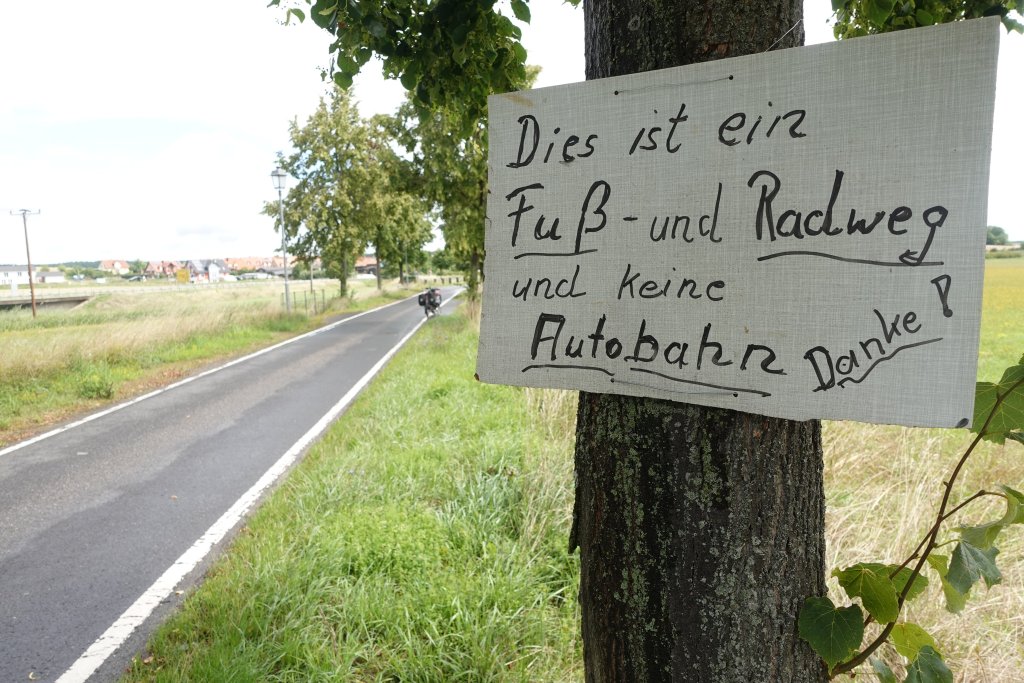 Dies ist ein
Fuß-und Radweg
und keine
Autobahn Danke!